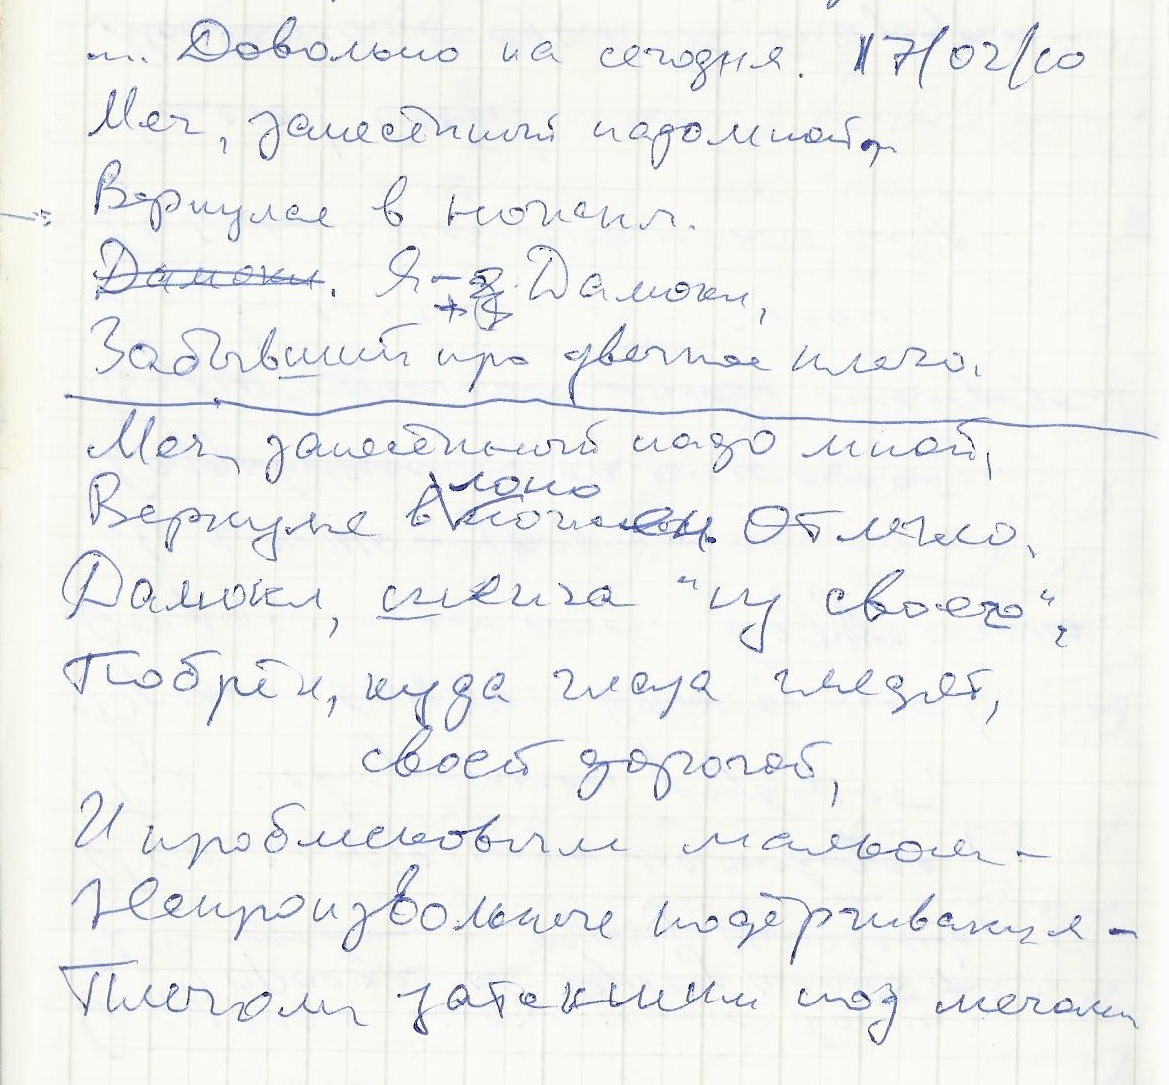 ... Довольно на сегодня. 17/02/10
Меч, занесённый надо мной,
Вернулся в ножны.
Дамокл. Я – Дамокл,
Забывший про двечное плечо.
Меч, занесённый надо мной,
лоно
Вернулся в ножен. Отлегло.
Дамокл, "из своего",
Побрёл, куда глаза глядят,
своей дорогой,
И проблисковым маяком –
Непроизвольное подёргиванье –
Плечом затекшим под мечом